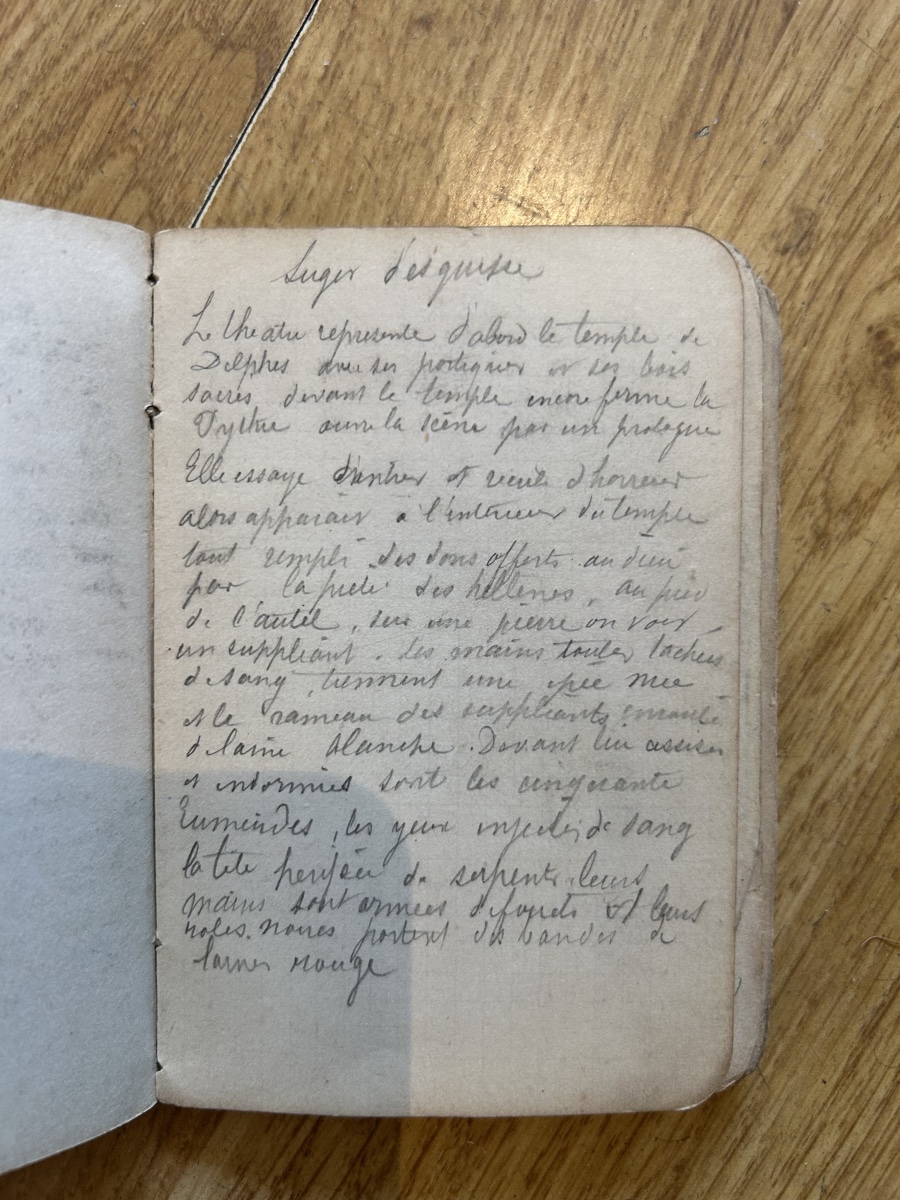 Sujet d'esquisse
Le theatre represente d'abord le temple de
Delphes avec ses portiques et ses bois
sacrés, devant le temple encore fermé la
Pythie ouvre la scène par un prologue
Elle essaye d'entrer et recule d'horreur
alors apparait à l'interieur du temple
tout rempli des dons offerts au dieu
par la pieté des hellenes, au pied
de l'autel, sur une pierre on voit
un suppliant. les mains toutes tachées
de sang, tiennent une epée nue
et le rameau des suppliants enroulé
de laine blanche. Devant lui assises
et endormies sont les cinquante
Eumenides, les yeux injectés de sang
la tete de serpents. leurs
mains sont armées de fouets et leurs
robes noires portent des bandes de
laines rouge